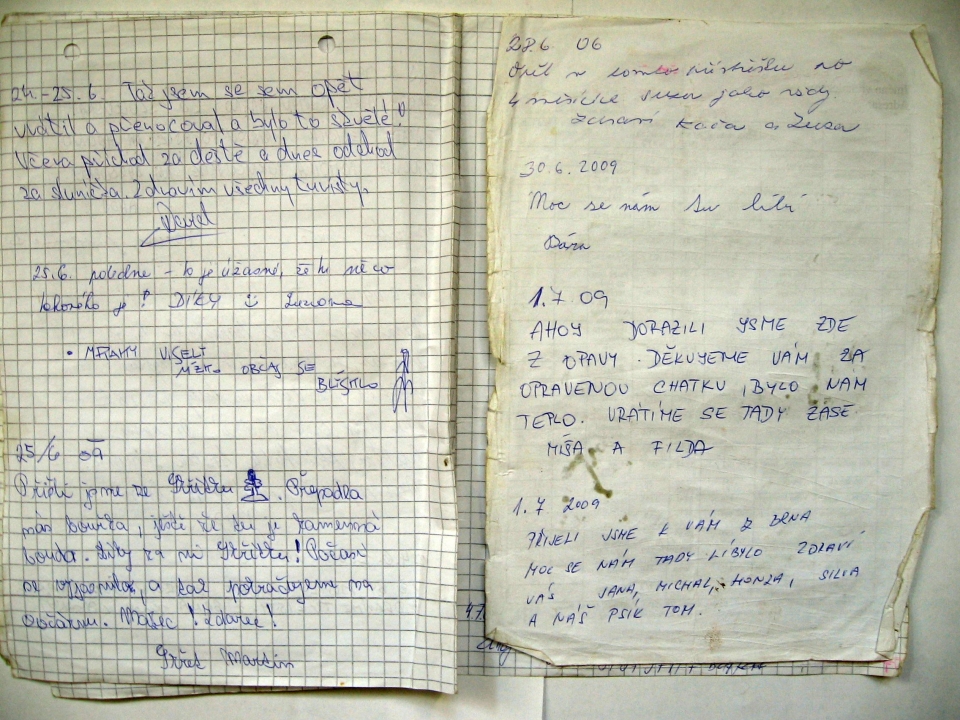 24.-25.6. Tak jsem se sem opět
vrátil a přenocoval a bylo to skvělé!
Včera příchod za deště a dnes odchod
za sluníčka. Zdravím všechny turisty.
David
25.6. poledne - to je úžasné, že tu něco
takového je! DÍKY Zuzana
• MRAKY VISELY
NÍZKO OBČAS SE
BLÝSKLO
25/6 09
Přišli jsme ze. Přepadla
nás bouřka, ještě že tu je kamenná
bouda. Díky za ni!
a tak pokračujeme na
! Zdarec!
Martin
28.6 06
Opět v tomto přístřešku po
4 měsících jako vždy
Zdraví Kača a Zuza
30.6.2009
Moc se nám tu líbí
Bára
1.7 09
AHOY DORAZILI YSME ZDE
Z OPAVY. DĚKUYEME VÁM ZA
OPRAVENOU CHATKU, BYLO NÁM
TEPLO. VRÁTÍME SE TADY ZASE
MÍŠA A FILDA
1.7 2009
PŘIJELI JSME K VÁM Z BRNA
MOC SE NÁM TADY LÍBYLO ZDRAVÍ
VÁS JANA, MICHAL, HONZA, SILVA
A NÁŠ PSÍK TOM.
4.7.